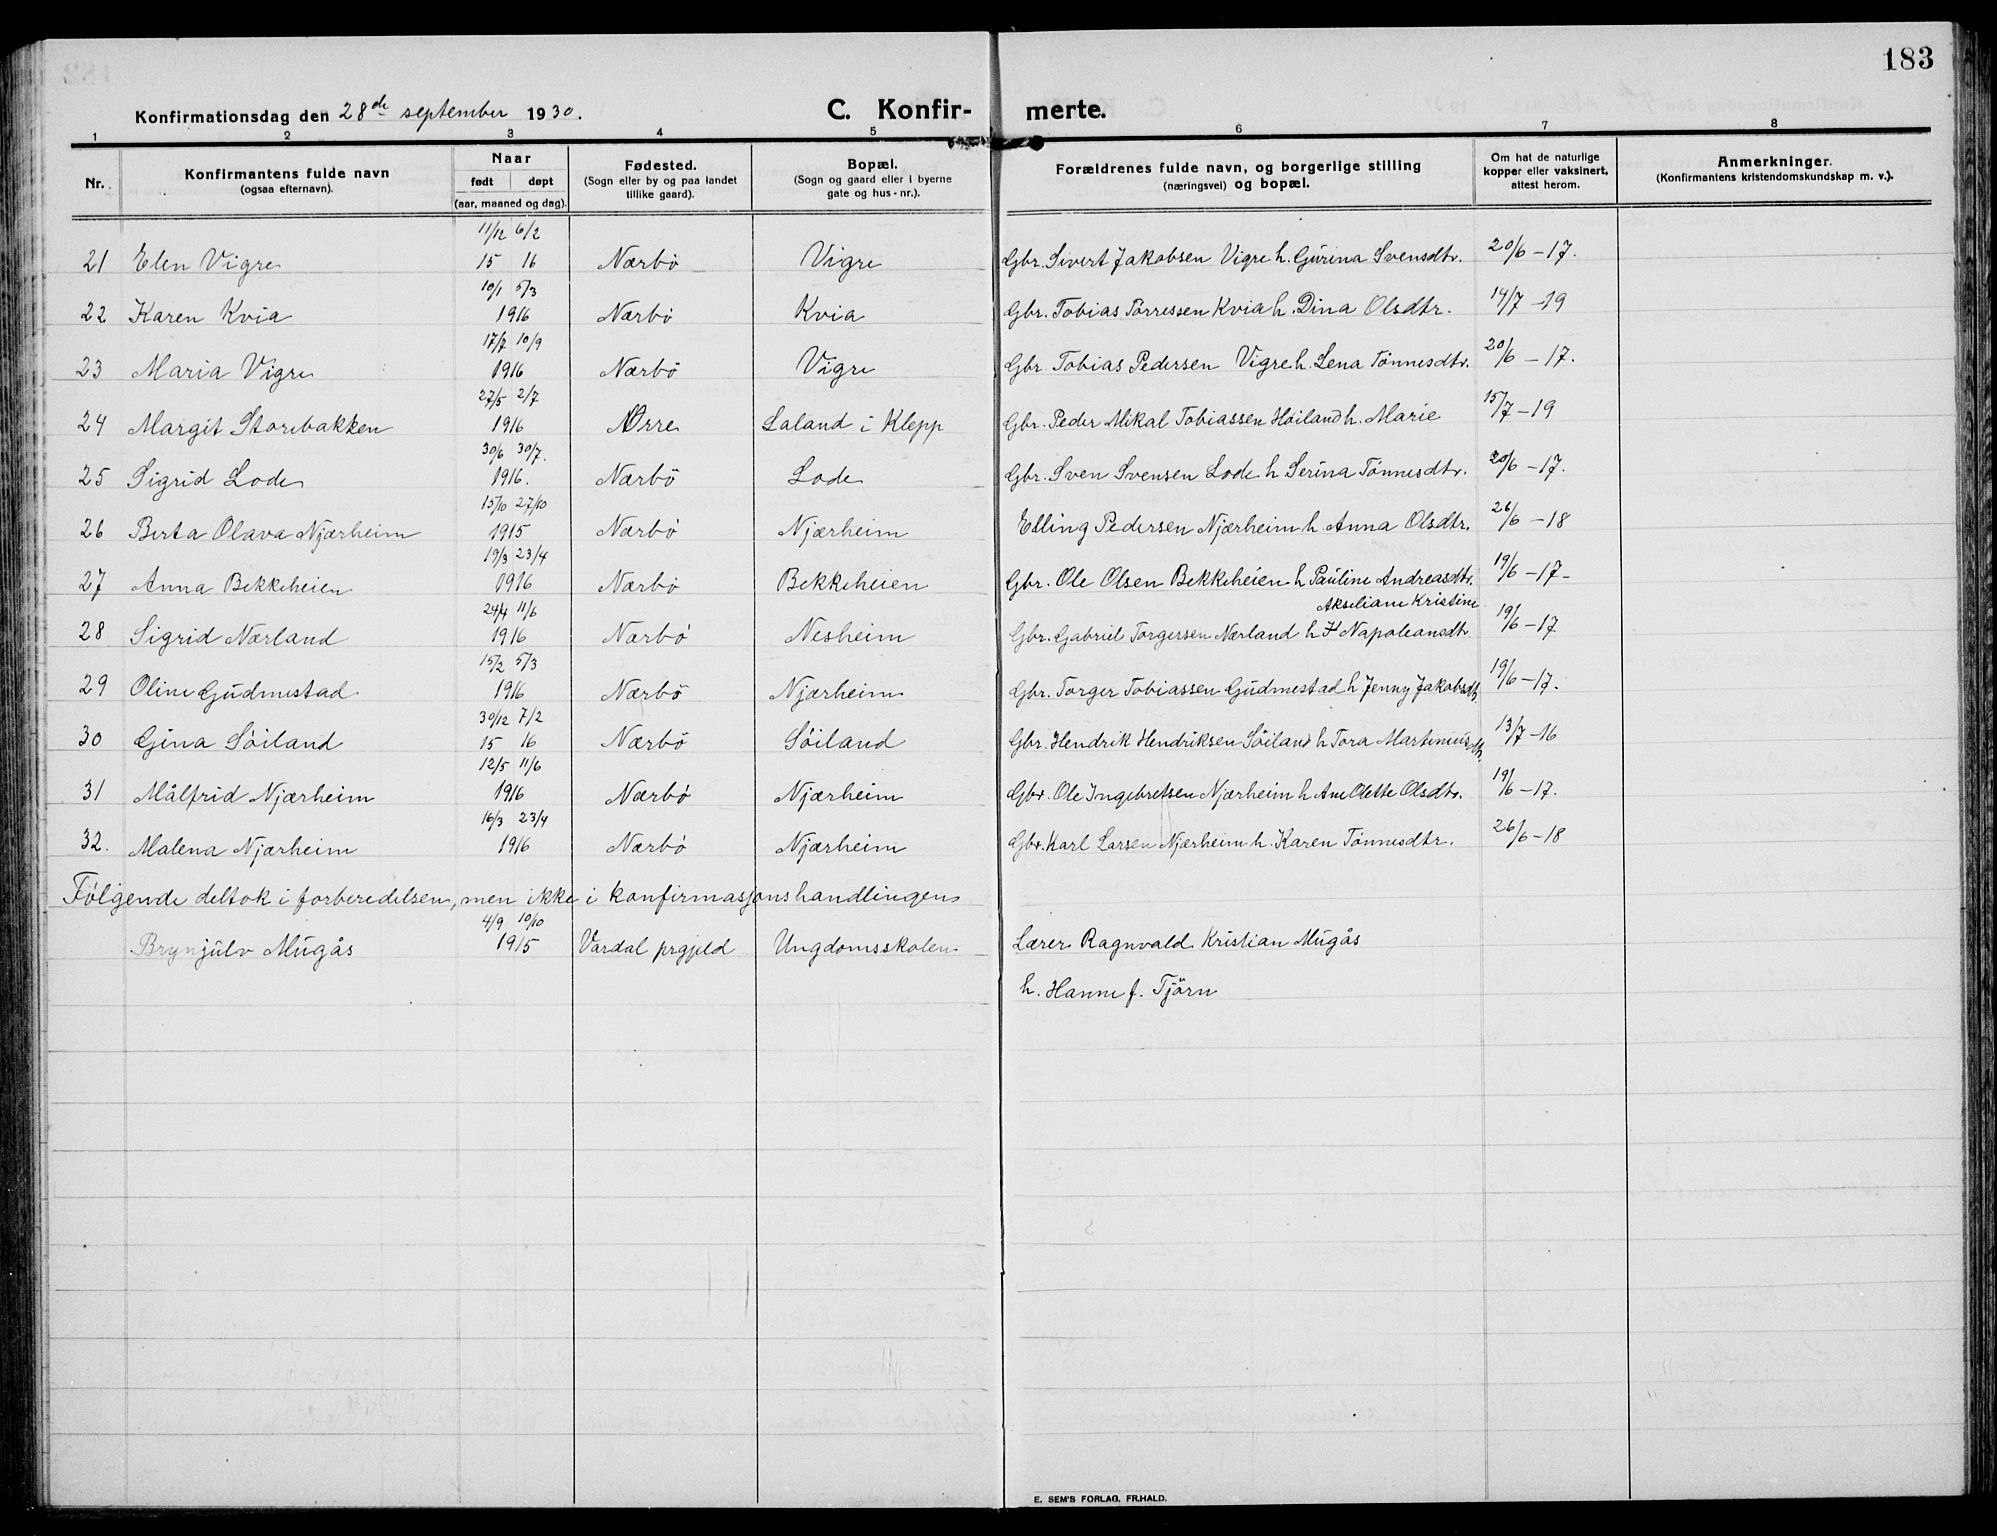 183
Konfirmationsdag den 28de september 1930.
C. Konfir- merte.
1 2 3 4 5 6 7 8
Nr.
Konfirmantens fulde navn
(ogsaa efternavn).
Naar
født døpt
(aar, maaned og dag).
Fødested.
(Sogn eller by og paa landet
tillike gaard).
Bopæl.
(Sogn og gaard eller i byerne
gate og hus-nr.).
Forældrenes fulde navn, og borgerlige stilling
(næringsvei) og bopæl.
Om hat de naturlige
kopper eller vaksinert,
attest herom.
Anmerkninger.
(Konfirmantens kristendomskundskap m. v.).
11/12 6/2
21 Elen Vigre 15 16 Nærbö Vigre Gbr. Sivert Jakobsen Vigre h. Gurina Svensdtr. 20/6 - 17.
10/1 5/3
22 Karen Kvia 1916 Nærbö Kvia Gbr. Tobias Törressen Kvia h. Dina Olsdtr. 14/7 - 19
17/7 10/9
23 Maria Vigre 1916 Nærbö Vigre Gbr. Tobias Pedersen Vigre h. Lena Tönnesdtr. 20/6 - 17.
27/5 2/7
24 Margit Storebakken 1916 Orre Laland i Klepp Gbr. Peder Mikal Tobiassen Höiland h. Marie 15/7 - 19
30/6 30/7.
25 Sigrid Lode 1916. Nærbö Lode Gbr. Sven Svensen Lode h Serina Tönnesdtr. 20/6 - 17.
15/10 27/10
26 Berta Olava Njærheim 1915 Nærbö Njærheim Elling Pedersen Njærheim h Anna Olsdtr. 26/6 - 18
19/3 23/4
27 Anna Bekkeheien 1916 Nærbö Bekkeheien Gbr. Ole Olsen Bekkeheien h Pauline Andreasdtr. 19/6 - 17-
24/4 11/6 Akseliane Kristine
28 Sigrid Nærland 1916 Nærbö Nesheim Gbr. Gabriel Torgersen Nærland h Napoleansdtr. 19/6 - 17
15/2 5/3
29 Oline Gudmestad 1916 Nærbö Njærheim Gbr. Torger Tobiassen Gudmestad h Jenny Jakobsdt. 19/6 - 17.
30/12 7/2
30 Gina Söiland 15 16 Nærbö Söiland Gbr. Hendrik Hendriksen Söiland h Tora Martiniusdtr. 13/7 - 16
12/5 11/6
31 Målfrid Njærheim 1916 Nærbö Njærheim Gbr. Ole Ingebretsen Njærheim h Ane Olette Olsdtr. 19/6 - 17.
16/3 23/4
32. Malena Njærheim 1916 Nærbö Njærheim Gbr. Karl Larsen Njærheim h. Karen Tönnesdtr. 26/6 - 18
Fölgende deltok i forberedelsen, men ikke i konfirmasjonshandlingen
4/9 10/10
Brynjulv Mugås 1915 Vardal prgjeld Ungdomsskolen Lærer Ragnvald Kristian Mugås
h. Hanne f. Tjörn
E. SEM'S FORLAG, FR.HALD.